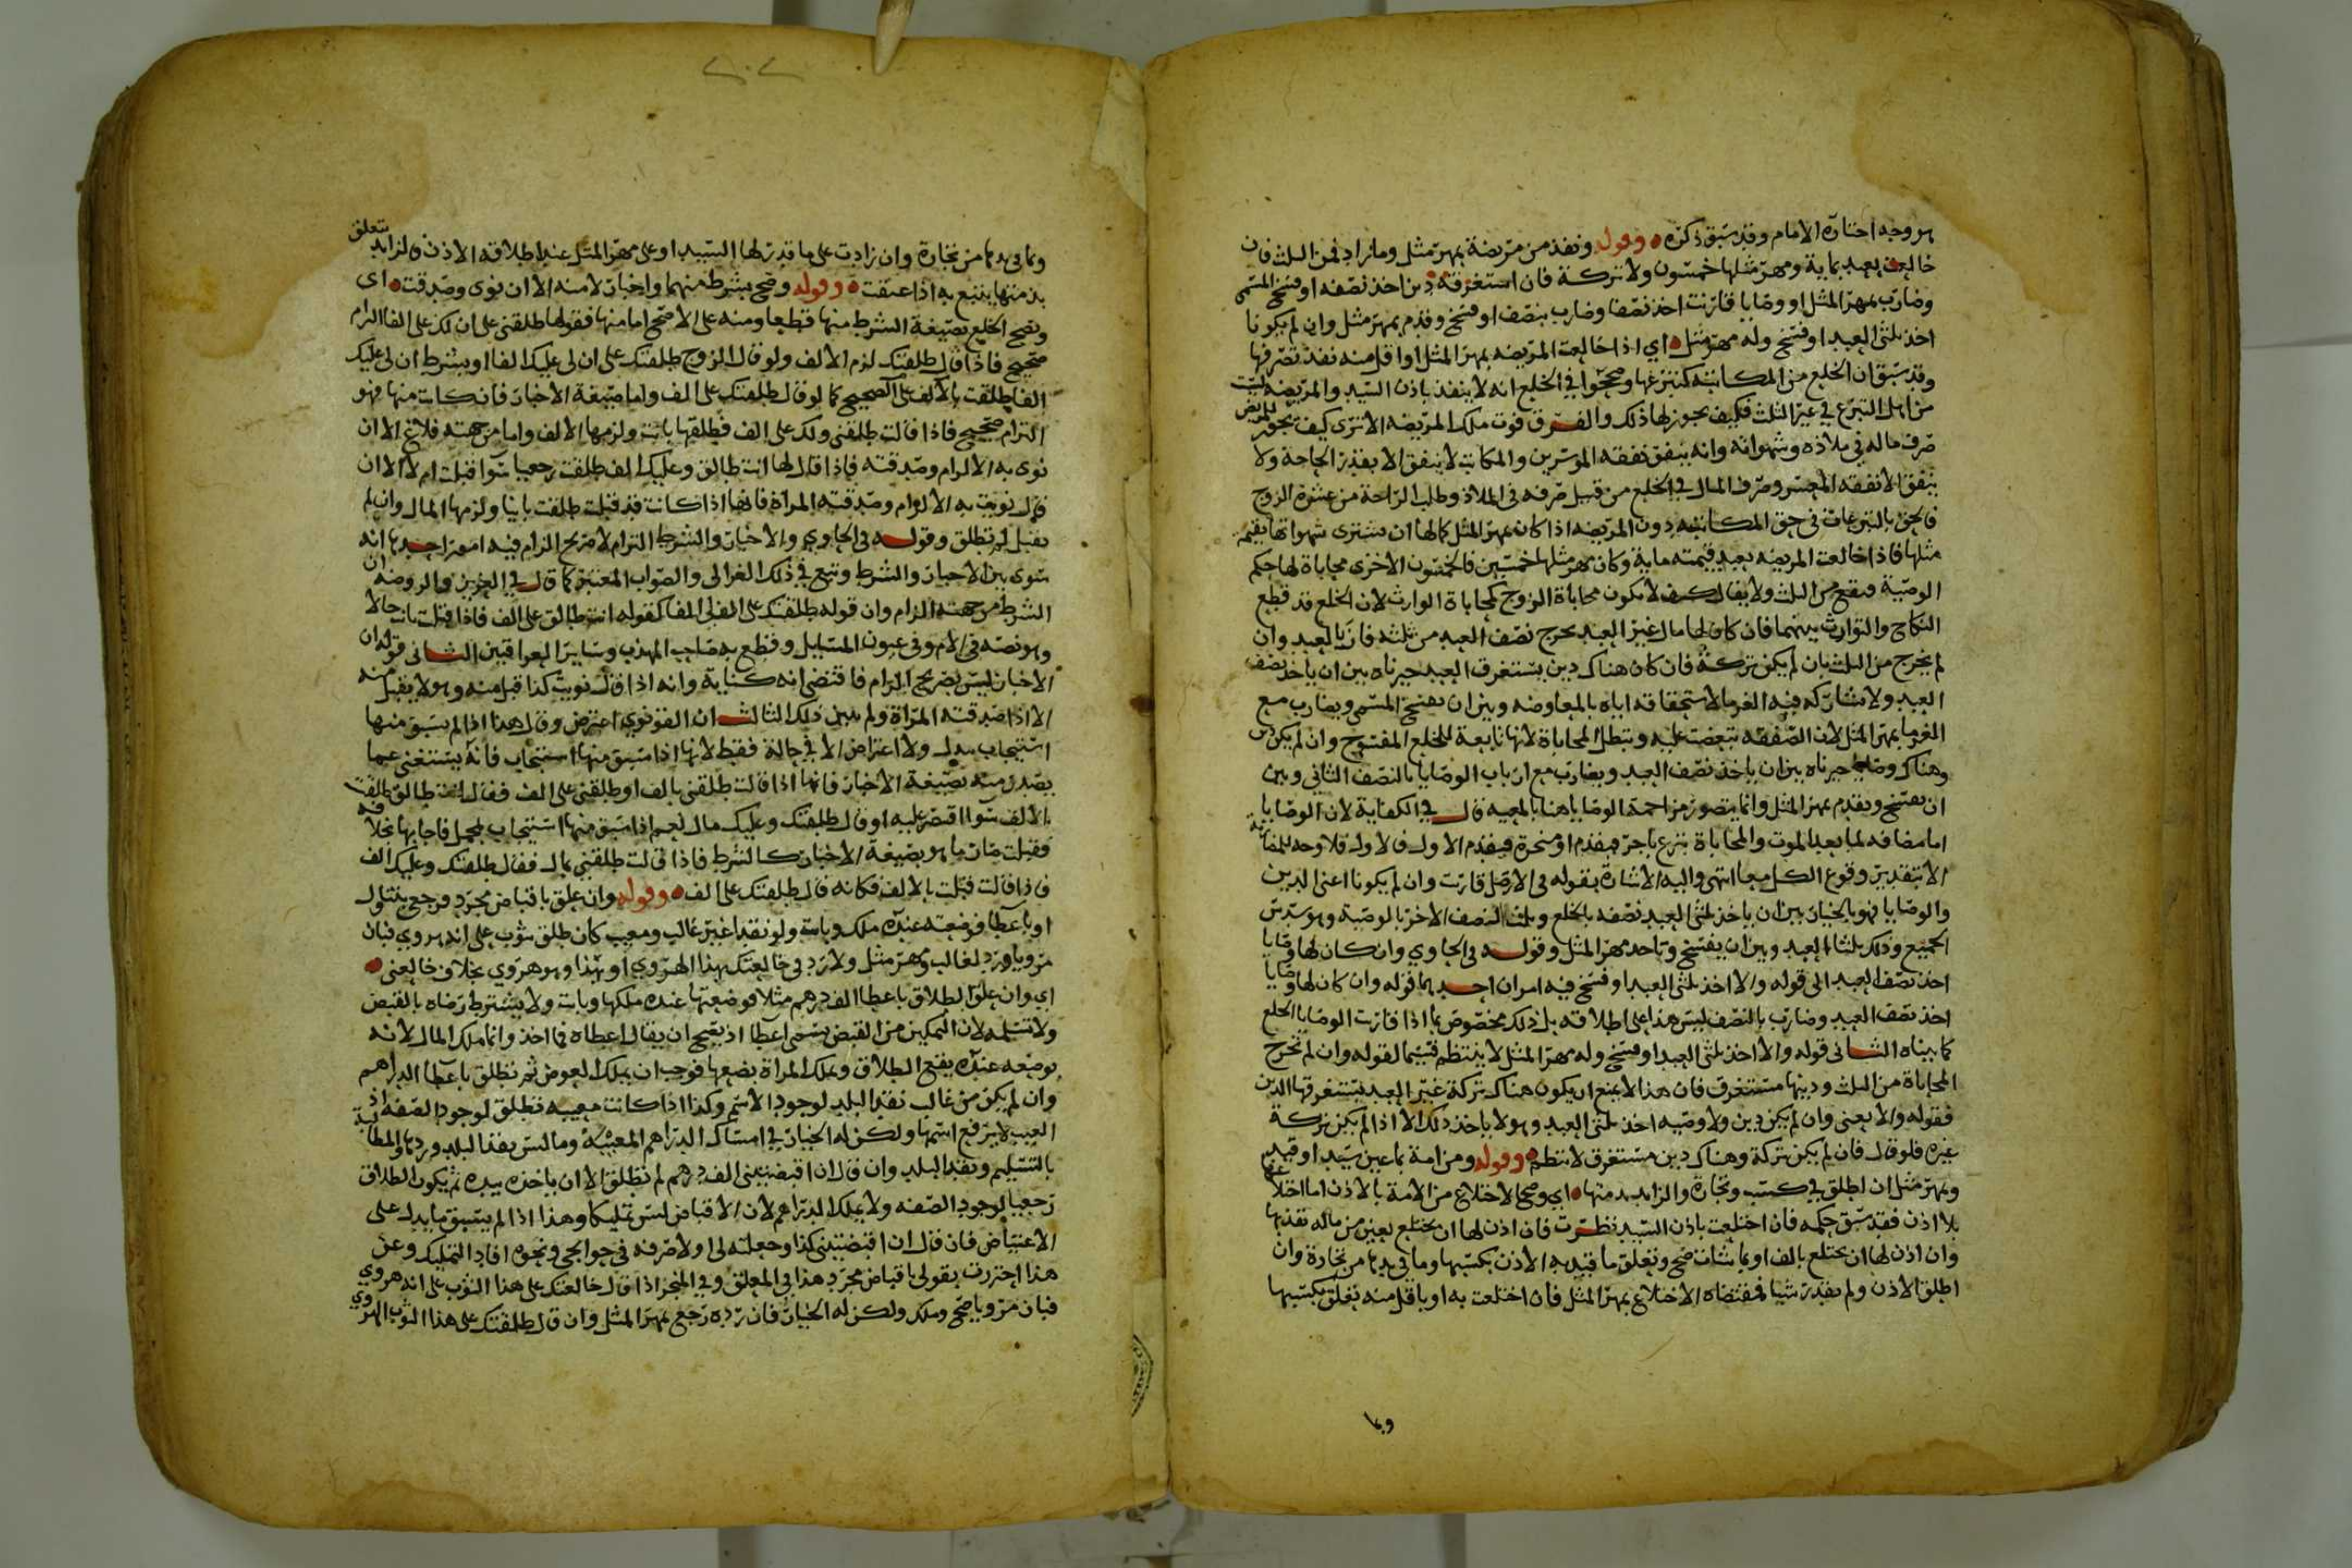 هو وجه اختاره الامام وقد سبق ذكره وقوله ونفذ من مريضة بمهر مثل وما زاد فمن الثلث فان
خالعت بعبد بماية ومهر مثلها خمسون ولا تركة فان استغرقه دين اخذ نصفه او فسخ المسمى
وضارب بمهر المثل او وصايا قارنت اخذ نصفا وضارب بنصف او فسخ وقدم بمهر مثل وان لم يكونا
اخذ ثلثي العبد او فسخ وله مهر مثل اي اذا خالعت المريضه بمهر المثل او اقل منه نفذ تصرفها
وقد سبق ان الخلع من المكاتبه كتبرعها وصححوا في الخلع انه لا ينفذ باذن السيد والمريضه ليست
من اهل التبرع في غير الثلث فكيف يجوز لها ذلك والفرق قوت ملك المريضه الا ترى كيف يجوز للمريض
صرف ماله في ملاذه وشهواته وانه ينفق نفقه الموسرين والمكاتب لا ينفق الا بقدر الحاجة ولا
ينفق الا نفقه المعسر وصرف المال في الخلع من قبيل صرفه في الملاذ وطلب الراحة من عشرة الزوج
فالحق بالتبرعات في حق المكاتبه دون المريضه اذا كان بمهر المثل كما لها ان تشتري شهواتها بقيمة
مثلها فاذا خالعت المريضه بعبد قيمته ماية وكان مهر مثلها خمسين فالخمسون الاخرى محاباة لها حكم
الوصية فيقع من الثلث ولا يقال كيف لا يكون محاباة الزوج كمحاباة الوارث لان الخلع قد قطع
النكاح والتوارث بينهما فان كان لها مال غير العبد يخرج نصف العبد من ثلثه فاز بالعبد وان
لم يخرج من الثلث بان لم يكن تركة فان كان هناك دين يستغرق العبد خيرناه بين ان ياخذ نصف
العبد ولا يشاركه فيه الغرما لاستحقاقه اياه بالمعاوضه وبين ان يفسخ المسمى ويضارب مع
الغرما بمهر المثل لان الصفقه تبعضت عليه وتبطل المحاباة لانها تابعة للخلع المفسوخ وان لم يكن دين
وهناك وصايا خيرناه بين ان ياخذ نصف العبد ويضارب مع ارباب الوصايا بالنصف الثاني وبين
ان يفسخ ويقدم بمهر المثل وانما يتصور مزاحمة الوصايا هنا بالمعيه قال في الكفاية لان الوصايا
اما مضافه لما بعد الموت والمحاباة تبرع ناجز فيقدم او منجزة فيقدم الاول فالاول فلا وجه للمضاربة
الا بتقدير وقوع الكل معا انتهى واليه الاشارة بقوله في الاصل قارنت وان لم يكونا اعني الدين
والوصايا فهو بالخيار بين ان ياخذ ثلثي العبد نصفه بالخلع وثلث النصف الاخر بالوصية وهو سدس
الجميع وذلك ثلثا العبد وبين ان يفسخ وياخذ مهر المثل وقوله في الحاوي وان كان لها وصايا
اخذ نصف العبد الى قوله والا اخذ ثلثي العبد او فسخ فيه امران احدهما قوله وان كان لها وصايا
اخذ نصف العبد وضارب بالنصف ليس هذا على اطلاقه بل ذلك مخصوص بما اذا قارنت الوصايا الخلع
كما بيناه الثاني قوله والا اخذ ثلثي العبد او فسخ وله مهر المثل لا ينتظم قسيما لقوله وان لم تخرج
المحاباة من الثلث ودينها مستغرق فان هذا لا يمنع ان يكون هناك تركة غير العبد يستغرقها الدين
فقوله والا يعني وان لم يكن دين ولا وصيه اخذ ثلثي العبد وهو لا ياخذ ذلك الا اذا لم يكن تركة
غيره فلو قال فان لم يكن تركة وهناك دين مستغرق لانتظم وقوله ومن امة بما عين سيد او قيد به
وبمهر مثل ان اطلق في كسب وتجارة والزايد بذمتها اي وصح الاختلاع من الامة بالاذن اما اختلاعها
بلا اذن فقد سبق حكمه فان اختلعت باذن السيد نظرت فان اذن لها ان تختلع بعين من ماله نفذ بها
وان اذن لها ان تختلع بالف او بما شات صح وتعلق ما قيد به الاذن بكسبها وما في يدها من تجارة وان
اطلق الاذن ولم يقدر شيا فمقتضاه الاختلاع بمهر المثل فان اختلعت به او باقل منه تعلق بكسبها
وبما
٢٠٢
وبما في يدها من تجارة وان زادت على ما قدر لها السيد او على مهر المثل عند اطلاقه الاذن فالزايد يتعلق
بذمتها يتبع به اذا عتقت وقوله وصح بشرط منهما واخبار لا منه الا ان نوى وصدقت اي
ويصح الخلع بصيغة الشرط منها قطعا ومنه على الاصح اما منها فقولها طلقني على ان لك على الفا الزام
صحيح فاذا قال طلقتك لزم الالف ولو قال الزوج طلقتك على ان لي عليك الفا او بشرط ان لي عليك
الفا طلقت بالالف على الصحيح كما لو قال طلقتك على الف واما صيغة الاخبار فان كانت منها فهو
التزام صحيح فاذا قالت طلقني ولك على الف فطلقها بانت ولزمها الالف واما من جهته فلاغ الا ان
نوى به الالزام وصدقته فاذا قال لها انت طالق وعليك الف طلقت رجعيا سوا قبلت ام لا الا ان
قال نويت به الالزام وصدقته المراة فانها اذا كانت قد قبلت طلقت باينا ولزمها المال وان لم
تقبل لم تطلق وقوله في الحاوي والاخبار والشرط التزام لا صريح الزام فيه امور احدها انه
سوى بين الاخبار والشرط وتبع في ذلك الغزالي والصواب المعتبر كما قال في العزيز والروضه ان
الشرط من جهته الزام وان قوله طلقتك على ان لي الفا كقوله انت طالق على الف فاذا قبلت بانت حالا
وهو نصه في الام وفي عيون المسايل وقطع به صاحب المهذب وساير العراقيين الثاني قوله ان
الاخبار ليس بصريح الزام فاقتضى انه كناية وانه اذا قال نويت كذا قبل منه وهو لا يقبل منه
الا اذا صدقته المراة ولم يبين ذلك الثالث ان القونوي اعترض وقال هذا اذا لم يسبق منها
استيجاب ببدل ولا اعتراض الا في حالة فقط لانها اذا سبق منها استيجاب فانه يستغنى عما
يصدر منه بصيغة الاخبار فانها اذا قالت طلقني بالف او طلقني على الف فقال انت طالق طلقت
بالالف سوا اقتصر عليه او قال طلقتك وعليك مال نعم اذا سبق منها استيجاب بمجمل فاجابها مخلا فه
فقبلت صار ما هو بصيغة الاخبار كالشرط فاذا قالت طلقني بمال فقال طلقتك وعليك الف
فاذا قالت قبلت بالالف فكانه قال طلقتك على الف وقوله وان علق باقباض مجرد فرجعي بتناول
او باعطا فوضعته عنده ملك وبانت ولو نقدا غير غالب ومعيب كان طلق بثوب على انه هروي فبان
مرويا ورد لغالب ومهر مثل ولا رد في خالعتك بهذا الهروي او بهذا وهو هروي بخلاف خالعني
اي وان علق الطلاق باعطا الف درهم مثلا فوضعتها عنده ملكها وبانت ولا يشترط رضاه بالقبض
ولا تسلمه لان التمكين من القبض يسمى اعطا اذ يصح ان يقال اعطاه فما اخذ وانما ملك المال لانه
بوضعه عنده يقع الطلاق وتملك المراة بضعها فوجب ان يملك العوض ثم تطلق باعطا الدراهم
وان لم يكن من غالب نقد البلد لوجود الاسم وكذا اذا كانت معيبه تطلق لوجود الصفه اذ
العيب لا يرفع اسمها ولكن له الخيار في امساك الدراهم المعيبة وما ليس بنقد البلد وردها والمطالبة
بالتسليم ونقد البلد وان قال ان اقبضتيني الف درهم لم تطلق الا ان ياخذه بيده ثم يكون الطلاق
رجعيا لوجود الصفه ولا يملك الدراهم لان الاقباض ليس تمليكا وهذا اذا لم يسبق ما يدل على
الاعتياض فان قال ان اقبضتيني كذا وجعلته لي او لاصرفه في حوايجي ونحوه افاد التمليك وعن
هذا احترزت بقولي باقباض مجرد هذا في المعلق وفي المنجز اذا قال خالعتك على هذا الثوب على انه هروي
فبان مرويا صح وملك ولكن له الخيار فان رده رجع بمهر المثل وان قال طلقتك على هذا الثوب الهروي